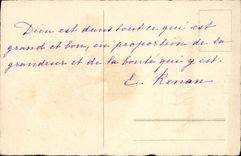 Dieu est dans tout ce qui est
grand et bon, en proportion de la
grandeur et de la bonté qui y est.
E. Renan